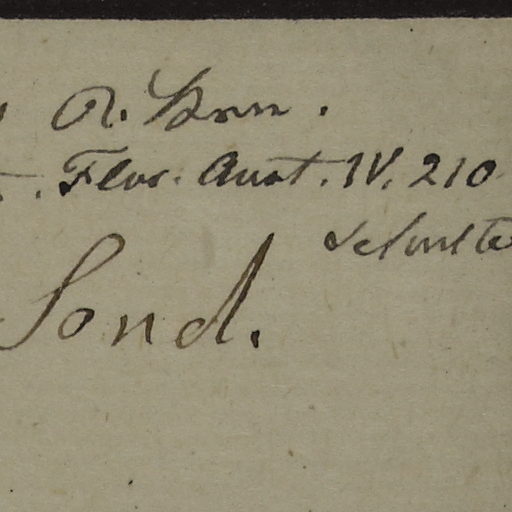 R. Br.
. Flor. Aust. IV. 210
Sond.